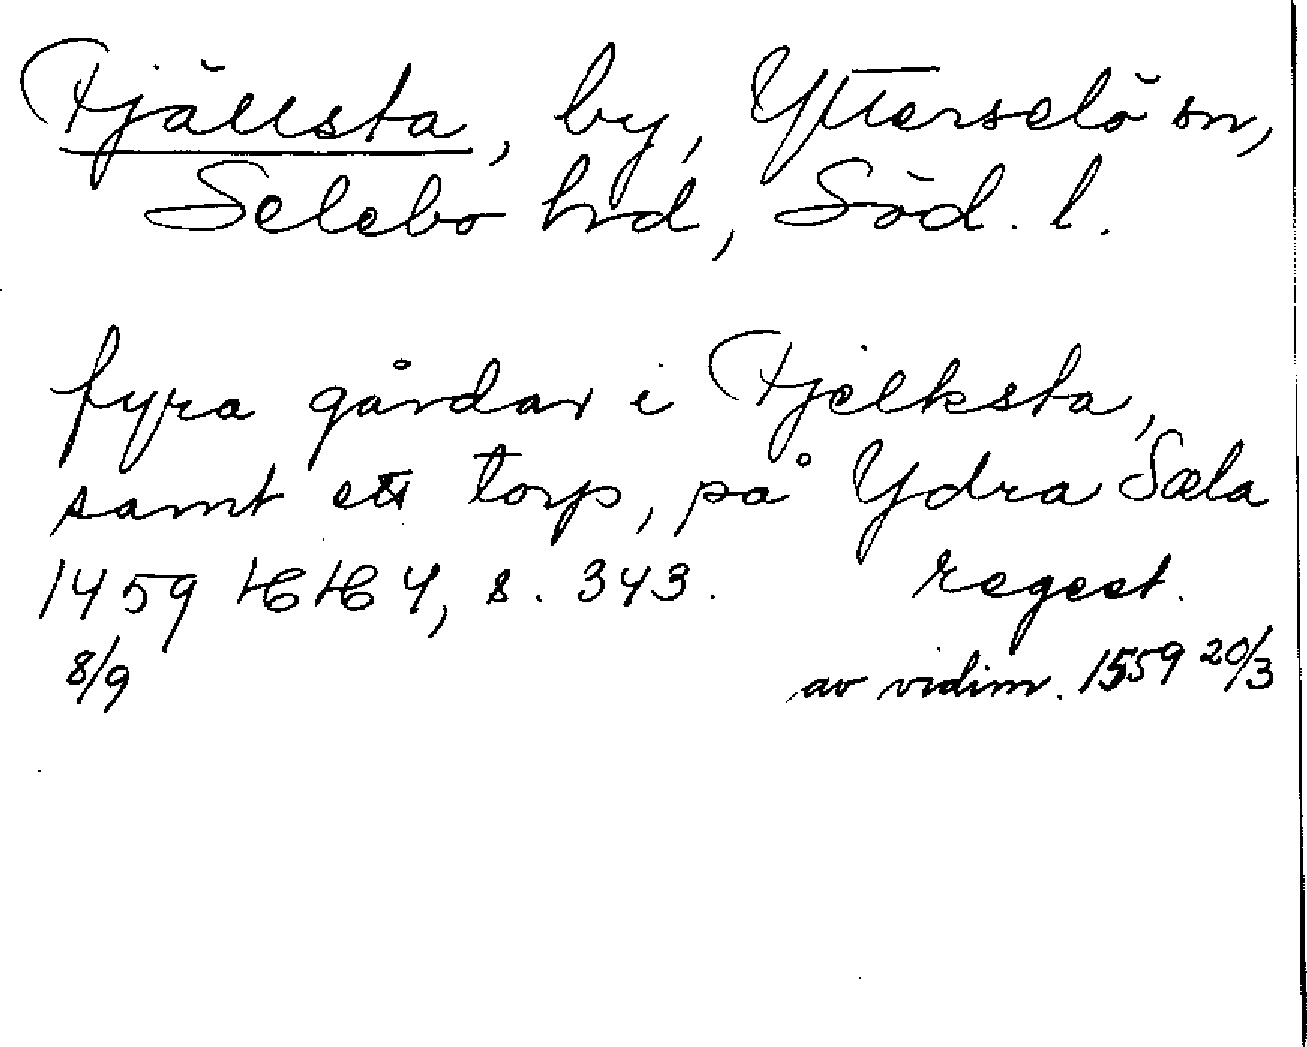 Fjällsta, by, Ytterselö sn,
Selebo hrd, Söd. l.
fyra gårdar i Fjelksta,
samt ett torp, på Ydra Sæla
1459 HH 4, s. 343. regest.
8/9 av vidim. 1559 20/3